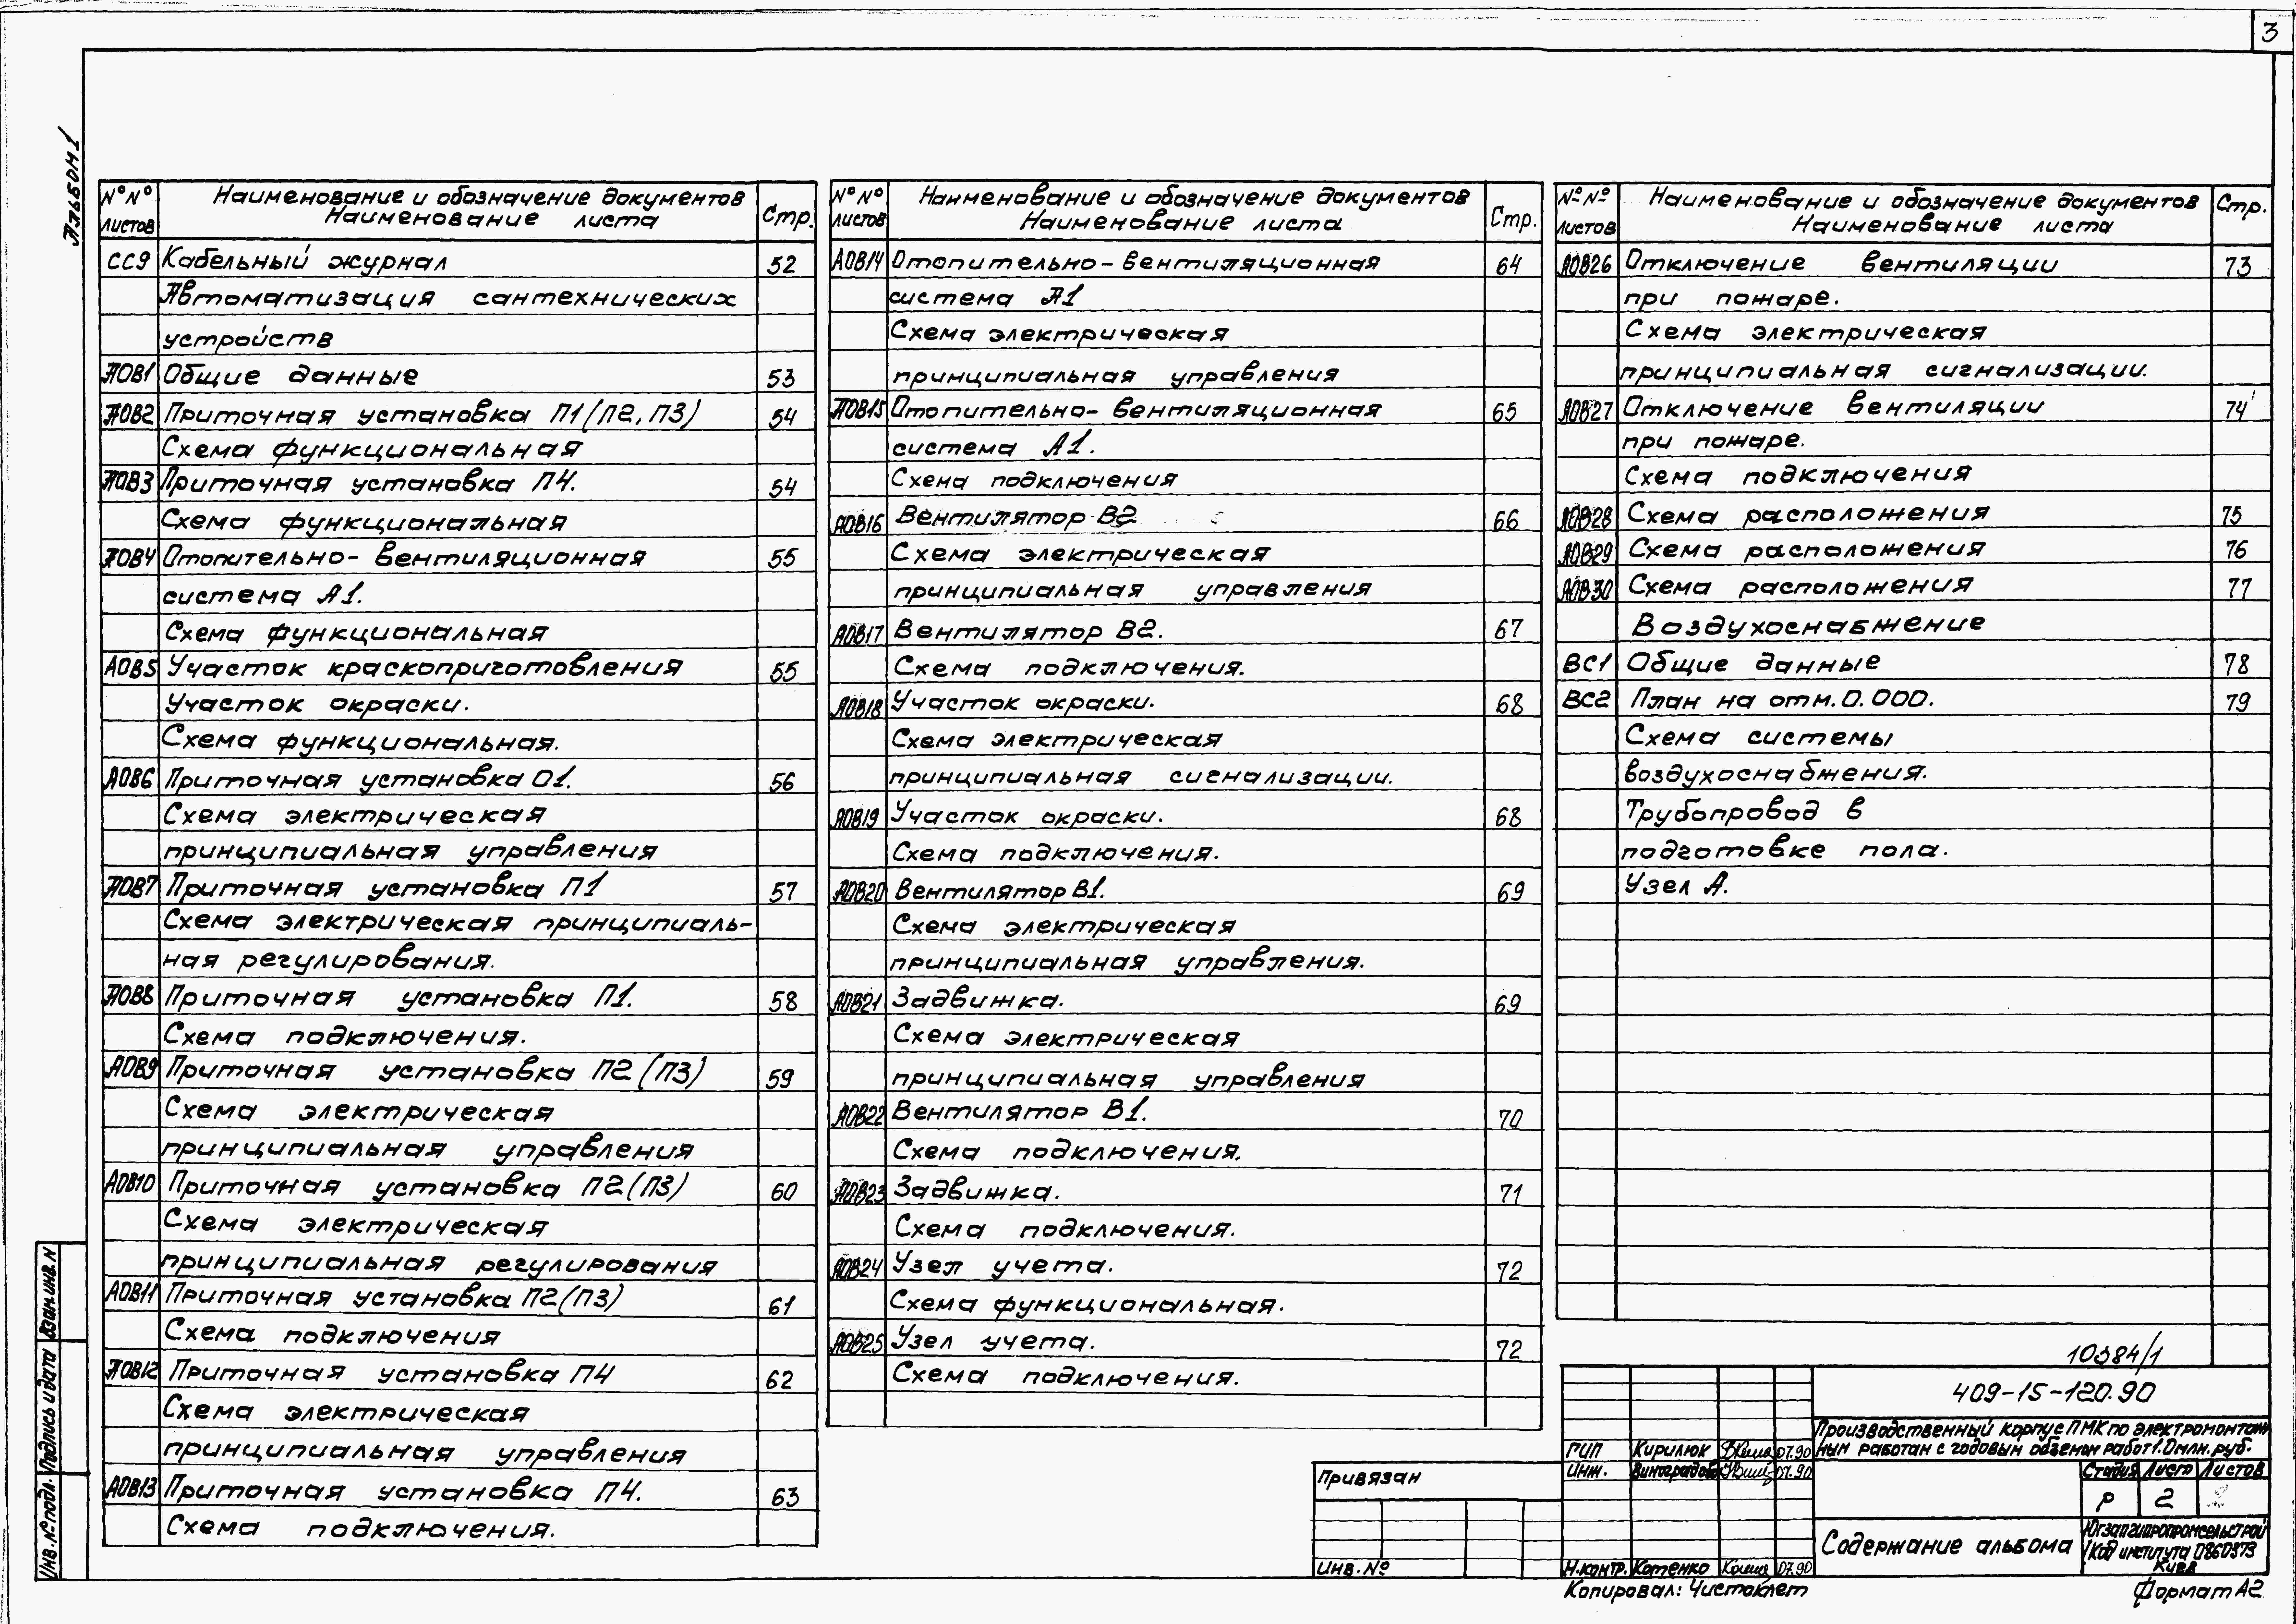 3
Альбом 1
№№ листов
Наименование и обозначение документов
Наименование листа
Стр.
СС9 Кабельный журнал 52
Автоматизация сантехнических
устройств
АОВ1 Общие данные 53
АОВ2 Приточная установка П1(П2,П3) 54
Схема функциональная
АОВ3 Приточная установка П4. 54
Схема функциональная
АОВ4 Отопительно-вентиляционная 55
система А1.
Схема функциональная
АОВ5 Участок краскоприготовления 55
Участок окраски.
Схема функциональная.
АОВ6 Приточная установка О1. 56
Схема электрическая
принципиальная управления
АОВ7 Приточная установка П1 57
Схема электрическая принципиаль-
ная регулирования.
АОВ8 Приточная установка П1. 58
Схема подключения.
АОВ9 Приточная установка П2(П3) 59
Схема электрическая
принципиальная управления
АОВ10 Приточная установка П2(П3) 60
Схема электрическая
принципиальная регулирования
АОВ11 Приточная установка П2(П3) 61
Схема подключения
АОВ12 Приточная установка П4 62
Схема электрическая
принципиальная управления
АОВ13 Приточная установка П4. 63
Схема подключения.
№№ листов
Наименование и обозначение документов
Наименование листа
Стр.
АОВ14 Отопительно-вентиляционная 64
система А1
Схема электрическая
принципиальная управления
АОВ15 Отопительно-вентиляционная 65
система А1.
Схема подключения
АОВ16 Вентилятор В2 66
Схема электрическая
принципиальная управления
АОВ17 Вентилятор В2. 67
Схема подключения.
АОВ18 Участок окраски. 68
Схема электрическая
принципиальная сигнализации.
АОВ19 Участок окраски. 68
Схема подключения.
АОВ20 Вентилятор В1. 69
Схема электрическая
принципиальная управления.
АОВ21 Задвижка. 69
Схема электрическая
принципиальная управления
АОВ22 Вентилятор В1. 70
Схема подключения.
АОВ23 Задвижка. 71
Схема подключения.
АОВ24 Узел учета. 72
Схема функциональная.
АОВ25 Узел учета. 72
Схема подключения.
№№ листов
Наименование и обозначение документов
Наименование листа
Стр.
АОВ26 Отключение вентиляции 73
при пожаре.
Схема электрическая
принципиальная сигнализации.
АОВ27 Отключение вентиляции 74
при пожаре.
Схема подключения
АОВ28 Схема расположения 75
АОВ29 Схема расположения 76
АОВ30 Схема расположения 77
Воздухоснабжение
ВС1 Общие данные 78
ВС2 План на отм.0.000. 79
Схема системы
воздухоснабжения.
Трубопровод в
подготовке пола.
Узел А.
10384/1
409-15-120.90
Производственный корпус ПМК по электромонтаж
ным работам с годовым объемом работ 1.0 млн. руб.
ГИП Кирилюк 07.90
Инж. Виноградова 07.90
Н.контр. Котенко 07.90
Привязан
Инв.№
Стадия Лист Листов
Р 2
Содержание альбома
Югзапгипропромсельстрой
Код института 0860373
Киев
Копировал: Чистоклет
Формат А2
Инв.№подл. Подпись и дата Взам.инв.N